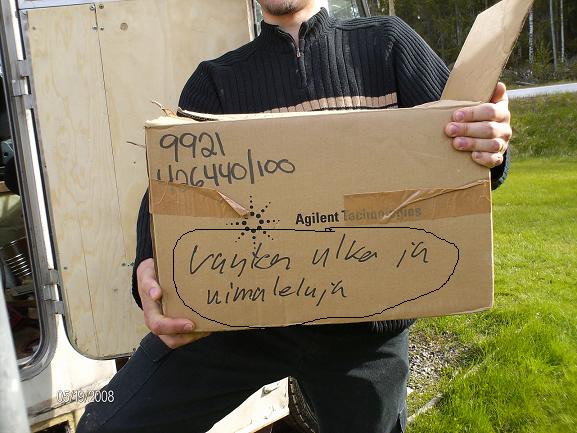 9921
426440/100
Agilent Technologies
vanha ulka ja
uimaleluja
05/19/2008